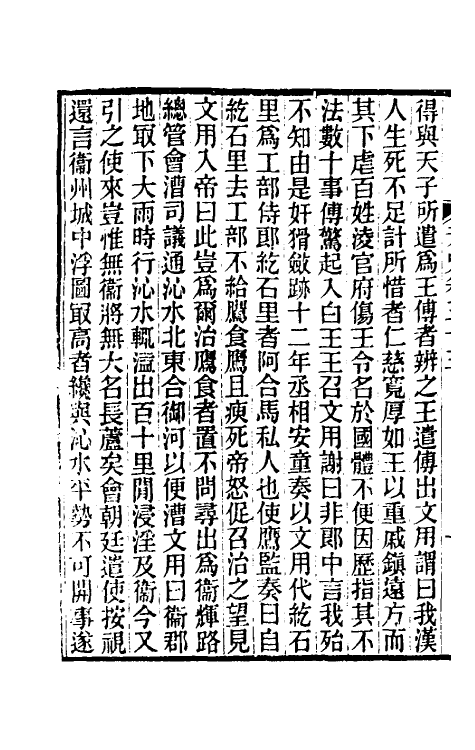 得與天子所遣爲王傅者辨之王遣傅出文用謂曰我漢
人生死不足計所惜者仁慈寬厚如王以重戚鎮遠方而
其下虐百姓淩官府傷王令名於國體不便因歷指其不
法數十事傅驚起入白王王召文用謝曰非郎中言我殆
不知由是奸猾斂跡十二年丞相安童奏以文用代紇石
里爲工部侍郎紇石里者阿合馬私人也使鷹監奏曰自
紇石里去工部不給鷹食鷹且瘐死帝怒促召治之望見
文用入帝曰此豈爲爾治鷹食者置不問尋出爲衞輝路
總管會漕司議通沁水北東合御河以便漕文用曰衞郡
地取下大雨時行沁水輒溢出百十里閒浸淫及衞今又
引之使來豈惟無衞將無大名長蘆矣會朝廷遣使按視
還言衞州城中浮圖㝡高者纔與沁水平勢不可開事遂